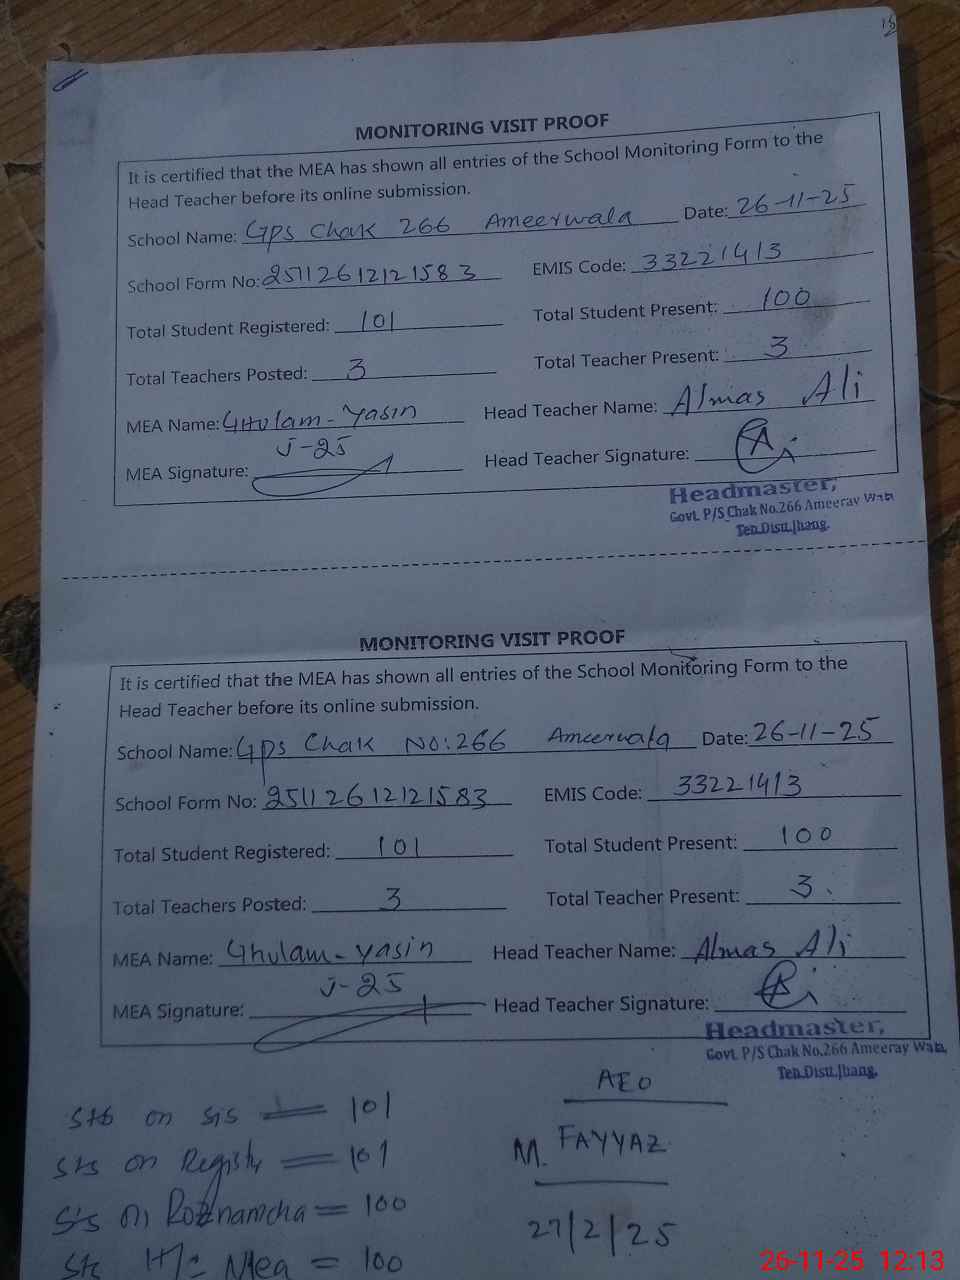 MONITORING VISIT PROOF
It is certified that the MEA has shown all entries of the School Monitoring Form to the
Head Teacher before its online submission.
School Name: GPS Chak 266 Ameerwala Date: 26-11-25
School Form No: 25112612121583 EMIS Code: 33221413
Total Student Registered: 101 Total Student Present: 100
Total Teachers Posted: 3 Total Teacher Present: 3
MEA Name: Ghulam-Yasin Head Teacher Name: Almas Ali
J-25
MEA Signature: Head Teacher Signature:
Headmaster,
Govt. P/S Chak No.266 Ameeray Wala
Teh.Distt.Jhang.
MONITORING VISIT PROOF
It is certified that the MEA has shown all entries of the School Monitoring Form to the
Head Teacher before its online submission.
School Name: GPS Chak No:266 Ameerwala Date: 26-11-25
School Form No: 25112612121583 EMIS Code: 33221413
Total Student Registered: 101 Total Student Present: 100
Total Teachers Posted: 3 Total Teacher Present: 3
MEA Name: Ghulam-Yasin Head Teacher Name: Almas Ali
J-25
MEA Signature: Head Teacher Signature:
Headmaster,
Govt. P/S Chak No.266 Ameeray Wala,
Teh.Distt.Jhang.
AEO
M. FAYYAZ
27/2/25
Sts on SIS = 101
Sts on Registr = 101
Sts on Roznamcha = 100
Sts Mea = 100
26-11-25 12:13